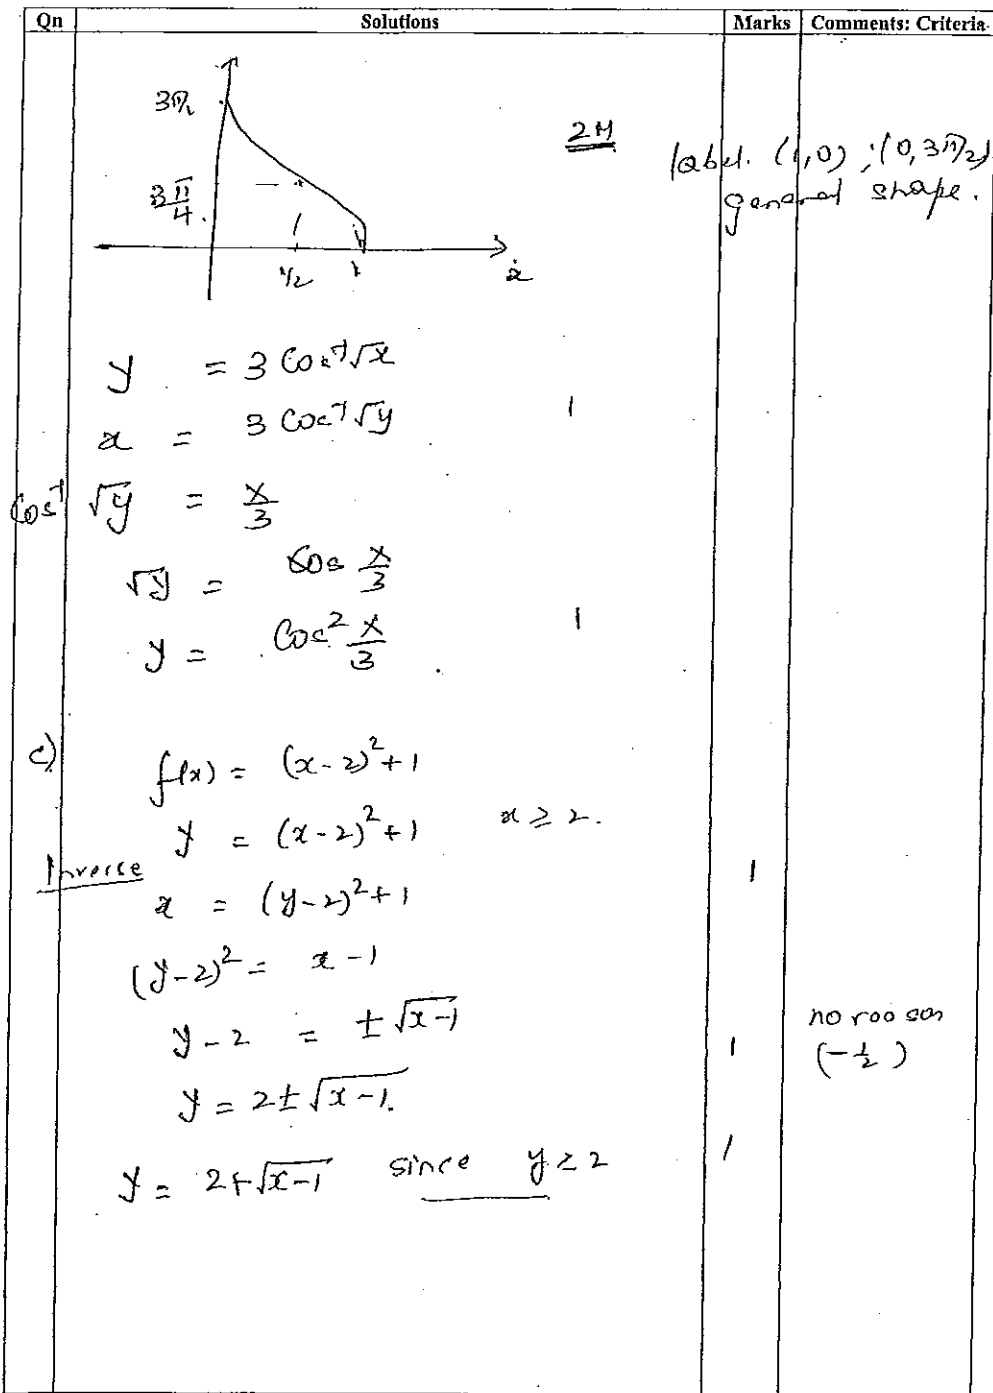 Qn Solutions Marks Comments: Criteria
3π/2
2M
label. (1,0) ; (0, 3π/2)
general shape.
3π/4
1/2 1 x
y = 3 Cos⁻¹√x
x = 3 Cos⁻¹√y 1
Cos⁻¹ √y = x/3
√y = Cos x/3
y = Cos² x/3 1
c) f(x) = (x-2)²+1
y = (x-2)²+1 x ≥ 2.
Inverse 1
x = (y-2)²+1
(y-2)² = x-1
y-2 = ±√x-1 1 no reason
(-1/2)
y = 2±√x-1.
y = 2+√x-1 since y ≥ 2 1